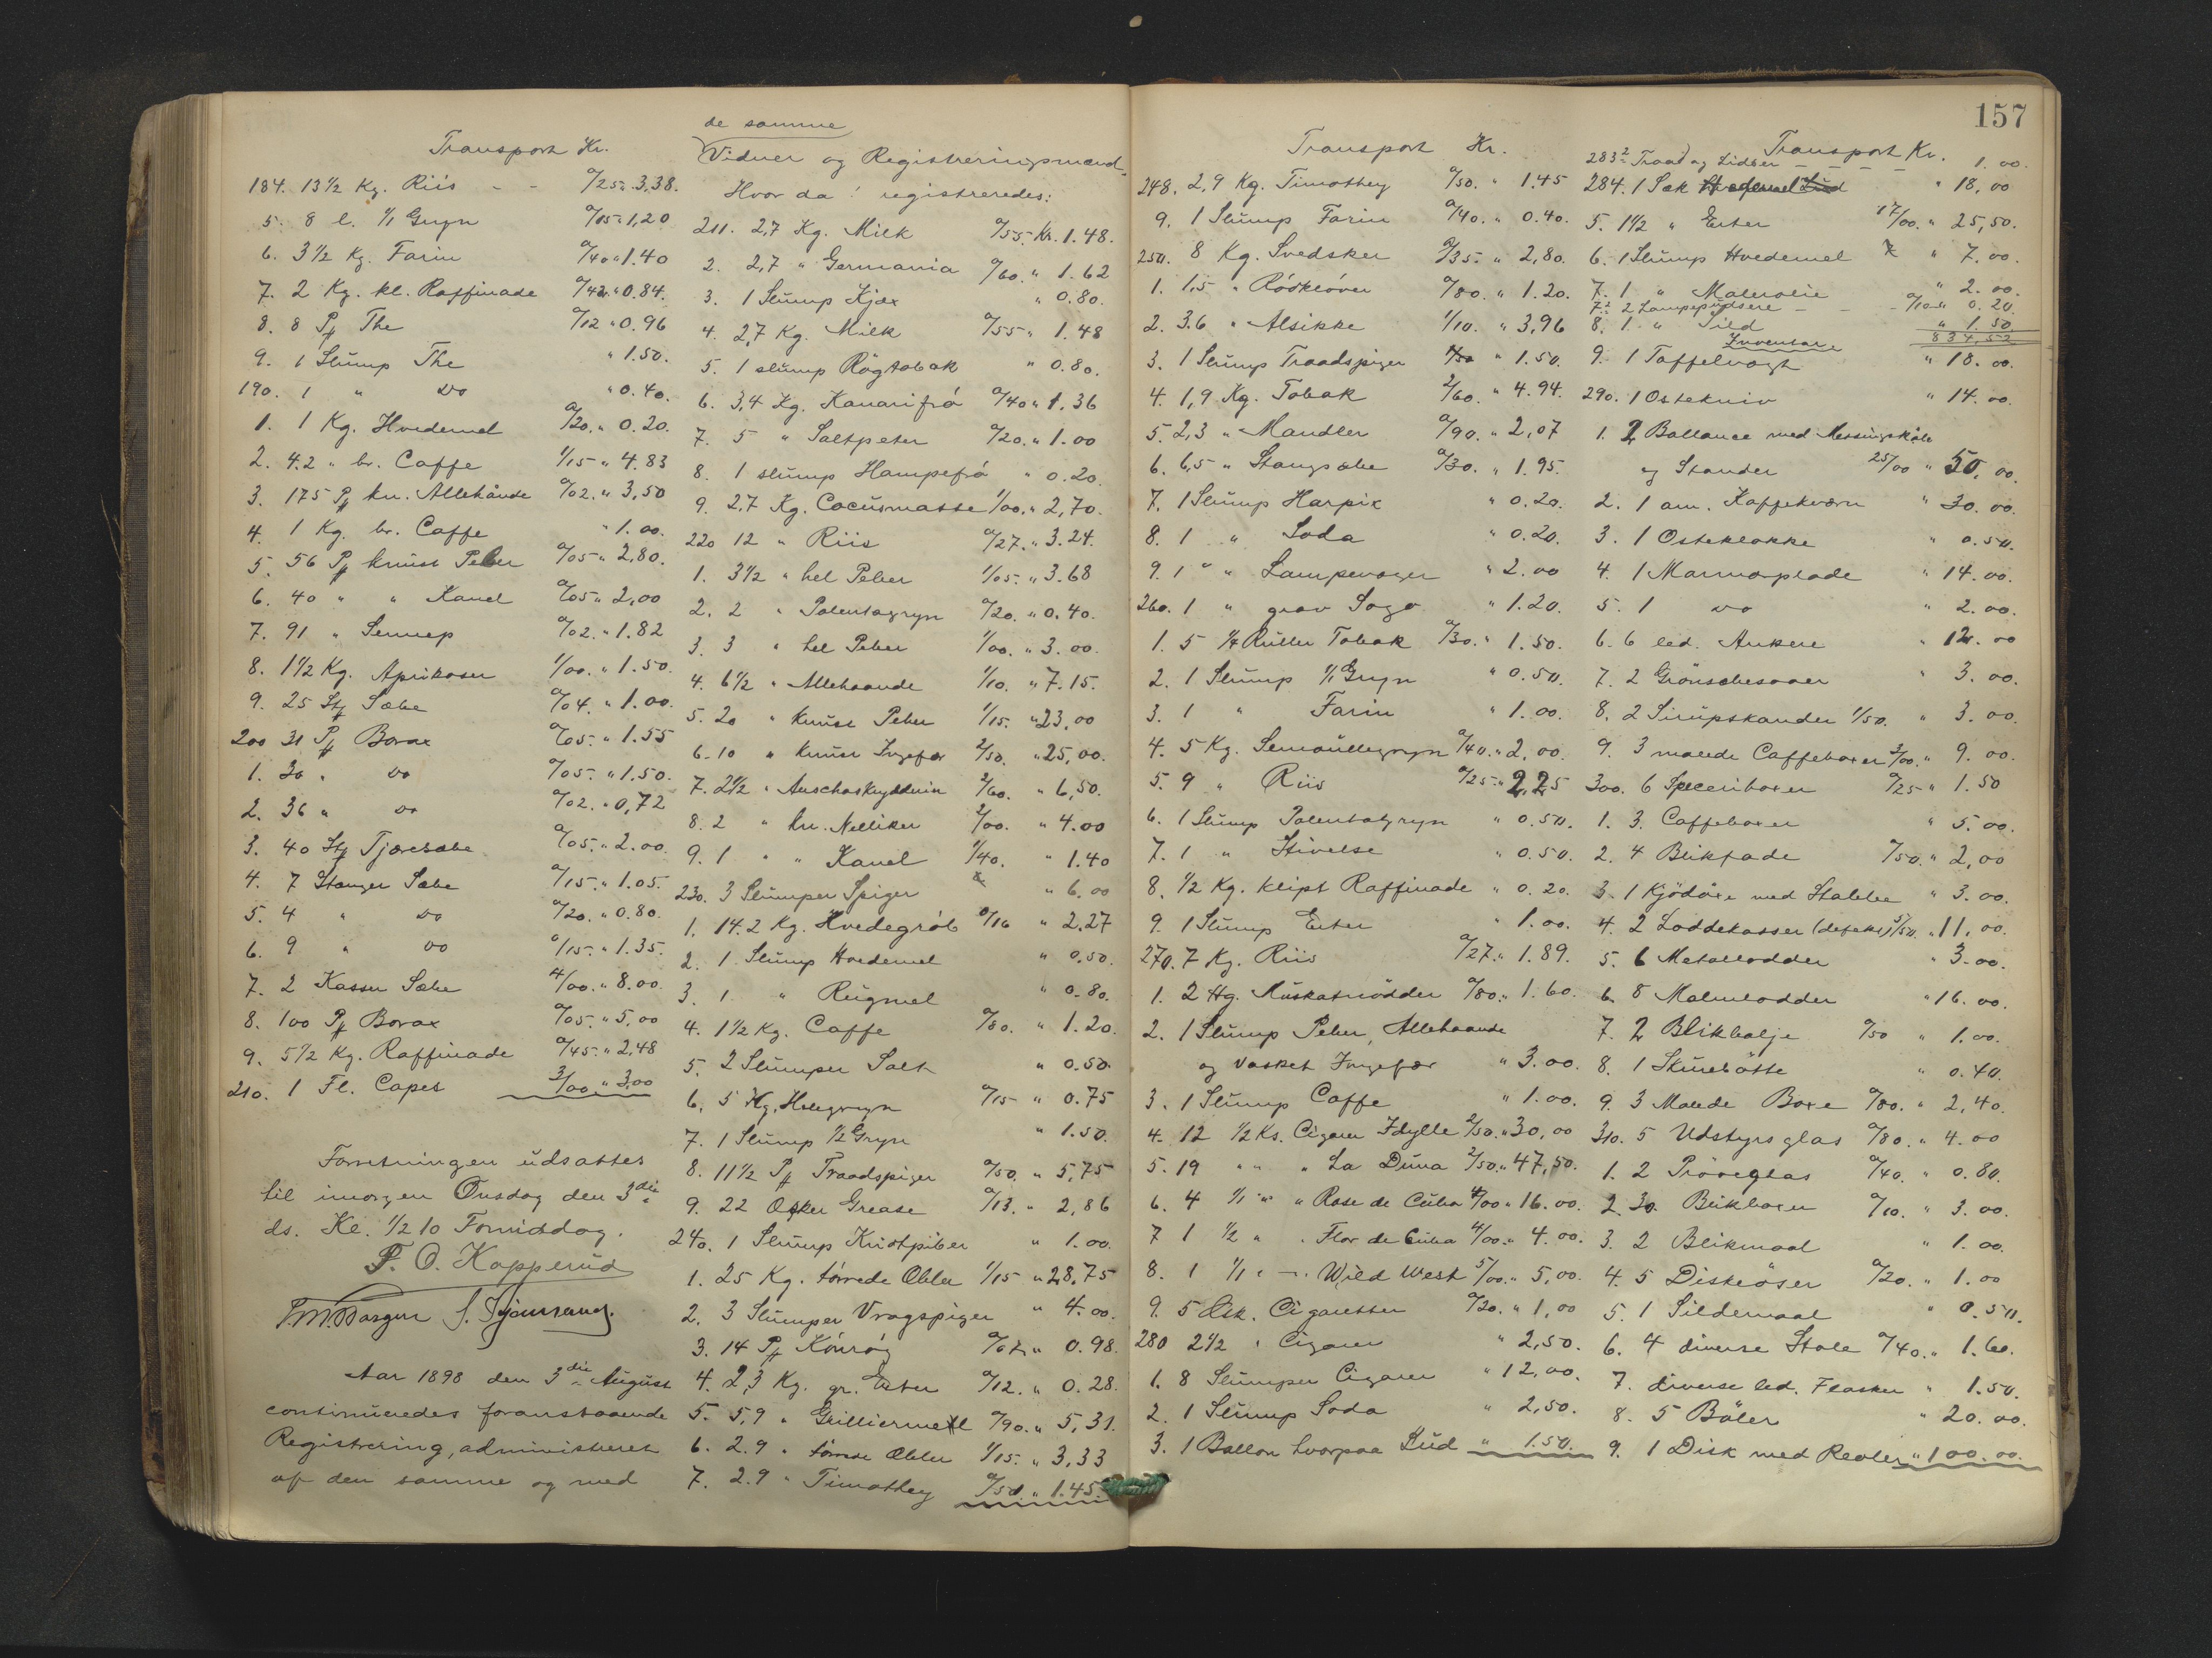 Transport Kr.
184. 13½ Kg. Riis - - 0/25 " 3.38.
5. 8 l. 1/1 Gryn 0/15 " 1,20
6. 3½ Kg. Farin 0/40 " 1.40
7. 2 Kg. kl. Raffinade 0/42 " 0.84.
8. 8 Pk The 0/12 " 0.96
9. 1 Slump The " 1.50.
190. 1 " do " 0.40.
1. 1 Kg. Hvedemel 0/20. " 0.20.
2. 4.2 " br. Caffe 1/15 " 4.83
3. 175 Pk kn. Allehånde 0/02. " 3,50
4. 1 Kg. br. Caffe " 1.00.
5. 56 Pk knust Peber 0/05 " 2,80.
6. 40 " " Kanel 0/05 " 2,00
7. 91 " Sennep 0/02. " 1.82
8. 1½ Kg. Aprikoser 1/00. " 1.50.
9. 25 Stk Sæbe 0/04. " 1.00.
200 31 Pk Borax 0/05. " 1.55
1. 30 " do 0/05. " 1.50.
2. 36 " do 0/02. " 0,72
3. 40 Stk Tjæresæbe 0/05. " 2.00.
4. 7 Stænger Sæbe 0/15. " 1.05.
5. 4 " do 0/20. " 0.80.
6. 9 " do 0/15. " 1.35.
7. 2 Kasser Sæbe 4/00. " 8.00.
8. 100 Pk Borax 0/05. " 5,00
9. 5½ Kg. Raffinade 0/45. " 2,48
210. 1 Fl. Capes 3/00 " 3,00
Forretningen udsattes
til imorgen Onsdag den 3die
ds. Kl. ½ 10 Formiddag.
F. O. Kopperud
Aar 1898 den 3die August
continueredes foranstaaende
Registrering, administreret
af den samme og med
de samme
Vidner og Registreringsmænd.
Hvor da registreredes:
211. 2,7 Kg. Milk 0/55 Kr. 1.48.
2. 2,7 " Germania 0/60. " 1.62
3. 1 Slump Kjæx " 0.80.
4. 2,7 Kg. Milk 0/55 " 1.48
5. 1 slump Røgtobak " 0.80.
6. 3,4 Kg. Kanarifrø 0/40 " 1.36
7. 5 " Saltpeter 0/20. " 1.00
8. 1 slump Hampefrø " 0.20.
9. 2.7 Kg. Cocusmasse 1/00. " 2,70.
220 12 " Riis 0/27. " 3.24.
1. 3½ " hel Peber 1/05. " 3.68
2. 2 " Polentagryn 0/20. " 0.40.
3. 3 " hel Peber 1/00. " 3.00.
4. 6½ " Allehaande 1/10. " 7.15.
5. 20 " knust Peber 1/15. " 23,00
6. 10 " knust Ingefær 2/50. " 25,00.
7. 2½ " 2/60. " 6,50.
8. 2 " kn. Nelliker 2/00. " 4.00
9. 1 " " Kanel 1/40. " 1.40
230. 3 Slumper Spiger " 6.00
1. 14.2 Kg. Hvedegrøb 0/16 " 2.27
2. 1 Slump Hvedemel " 0.50.
3. 1 " Rugmel " 0.80.
4. 1½ Kg. Caffe 0/80. " 1.20.
5. 2 Slumper Salt " 0.50.
6. 5 Kg. Helegryn 0/15 " 0.75
7. 1 Slump ½ Gryn " 1.50.
8. 11½ Pk Traadspiger 0/50. " 5,75
9. 22 Esker Grease 0/13. " 2,86
240. 1 Slump Kridtpiber " 1.00.
1. 25 Kg. tørrede Æbler 1/15 " 28,75
2. 3 Slumper Vragspiger " 4.00.
3. 14 Pk Kønrøg 0/07. " 0.98.
4. 2,3 Kg. gr. Erter 0/12. " 0.28.
5. 5,9 " 0/90. " 5,31.
6. 2.9 " tørrede Æbler 1/15. " 3,33
7. 2.9 " Timothey 0/50. " 1.45.
157
Transport Kr.
248. 2,9 Kg. Timothey 0/50. " 1.45
9. 1 Slump Farin 0/40. " 0.40.
250. 8 Kg. Svedsker 0/35. " 2,80.
1. 1,5 " Rødkløver 0/80. " 1.20.
2. 3.6 " Alsikke 1/10. " 3,96
3. 1 Slump Traadspiger " 1.50.
4. 1,9 Kg. Tobak 2/60. " 4.94.
5. 2,3 " Mandler 0/90. " 2,07
6. 6,5 " Stangsæbe 0/30. " 1.95.
7. 1 Slump Harpix " 0.20.
8. 1 " Soda " 0.20.
9. 1 " Lampevæger " 2.00
260. 1 " grov Sago " 1.20.
1. 5 ¼ Ruller Tobak 0/30. " 1.50.
2. 1 Slump 1/1 Gryn " 0.50.
3. 1 " Farin " 1.00.
4. 5 Kg. Semoullegryn 0/40. " 2,00.
5. 9 " Riis 0/25 " 2,25
6. 1 Slump Polentagryn " 0.50.
7. 1 " Stivelse " 0.50.
8. ½ Kg. klipt Raffinade " 0.20.
9. 1 Slump Erter " 1.00.
270. 7 Kg. Riis 0/27. " 1.89.
1. 2 Hg. Muskatnødder 0/80. " 1.60.
2. 1 Slump Peber, Allehaande
og vasket Ingefær " 3.00.
3. 1 Slump Caffe " 1.00.
4. 12 ½ Ks. Cigarer Idylle 2/50. " 30,00
5. 19 " " " La Duna 2/50. " 47,50.
6. 4 1/1 " " Rose de Cuba 4/00 " 16.00.
7 1 ½ " " Flor de Cuba 4/00. " 4.00.
8. 1 1/1 " " Wild West 5/00. " 5,00.
9. 5 Æsk. Cigaretter 0/20. " 1,00
280 2½ " Cigarer " 2,50.
1. 8 Slumper Cigarer " 12,00.
2. 1 Slump Soda " 2,50.
3. 1 Ballon hvorpaa Lud " 1.50.
Transport Kr.
283² Traad og Lidser - - - - 1.00.
284. 1 Sæk Hvedemel Lud " 18,00
5. 1½ " Erter 17/00. " 25,50.
6. 1 Slump Hvedemel " 7.00.
7. 1 " Maleolie " 2.00.
7² 2 Lampepudsere - - - 0/10 " 0.20
8. 1 " Sild " 1.50
834,52
Inventar
9. 1 Taffelvægt " 18.00.
290. 1 Ostekniv " 14.00.
1. 2 Ballance med Messingskåle
og Stander 25/00 " 50,00.
2. 1 am. Kaffekværn " 30.00.
3. 1 Osteklokke " 0.50.
4. 1 Marmorplade " 14.00.
5. 1 do " 2.00.
6. 6 led. Ankere " 12.00
7. 2 " 3.00.
8. 2 Sirupskander 1/50. " 3.00.
9. 3 malede Caffeboxer 3/00. " 9.00.
300. 6 Speceriboxer 0/25 " 1.50
1. 3. Caffeboxer " 5.00.
2. 4 Blikfade 0/50. " 2,00
3. 1 Kjødøxe med Stabbe " 3.00.
4. 2 Loddekasser (defekt) 5/50. " 11,00.
5. 6 Metallodder " 3.00.
6. 8 Malmlodder " 16.00.
7. 2 Blikbalje 0/50 " 1.00.
8. 1 Skurebøtte " 0.40.
9. 3 Malede Boxe 0/80. " 2,40.
310. 5 Udstyrsglas 0/80. " 4.00
1. 2 Prøveglas 0/40. " 0.80.
2. 30. Blikboxer 0/10. " 3.00.
3. 2 Blikmaal " 1.00.
4. 5 Diskeøser 0/20. " 1.00
5. 1 Sildemaal " 0.50.
6. 4 diverse Stole 0/40. " 1.60.
7. diverse led. Flasker " 1.50.
8. 5 Bøler " 20.00.
9. 1 Disk med Reoler " 100.00.